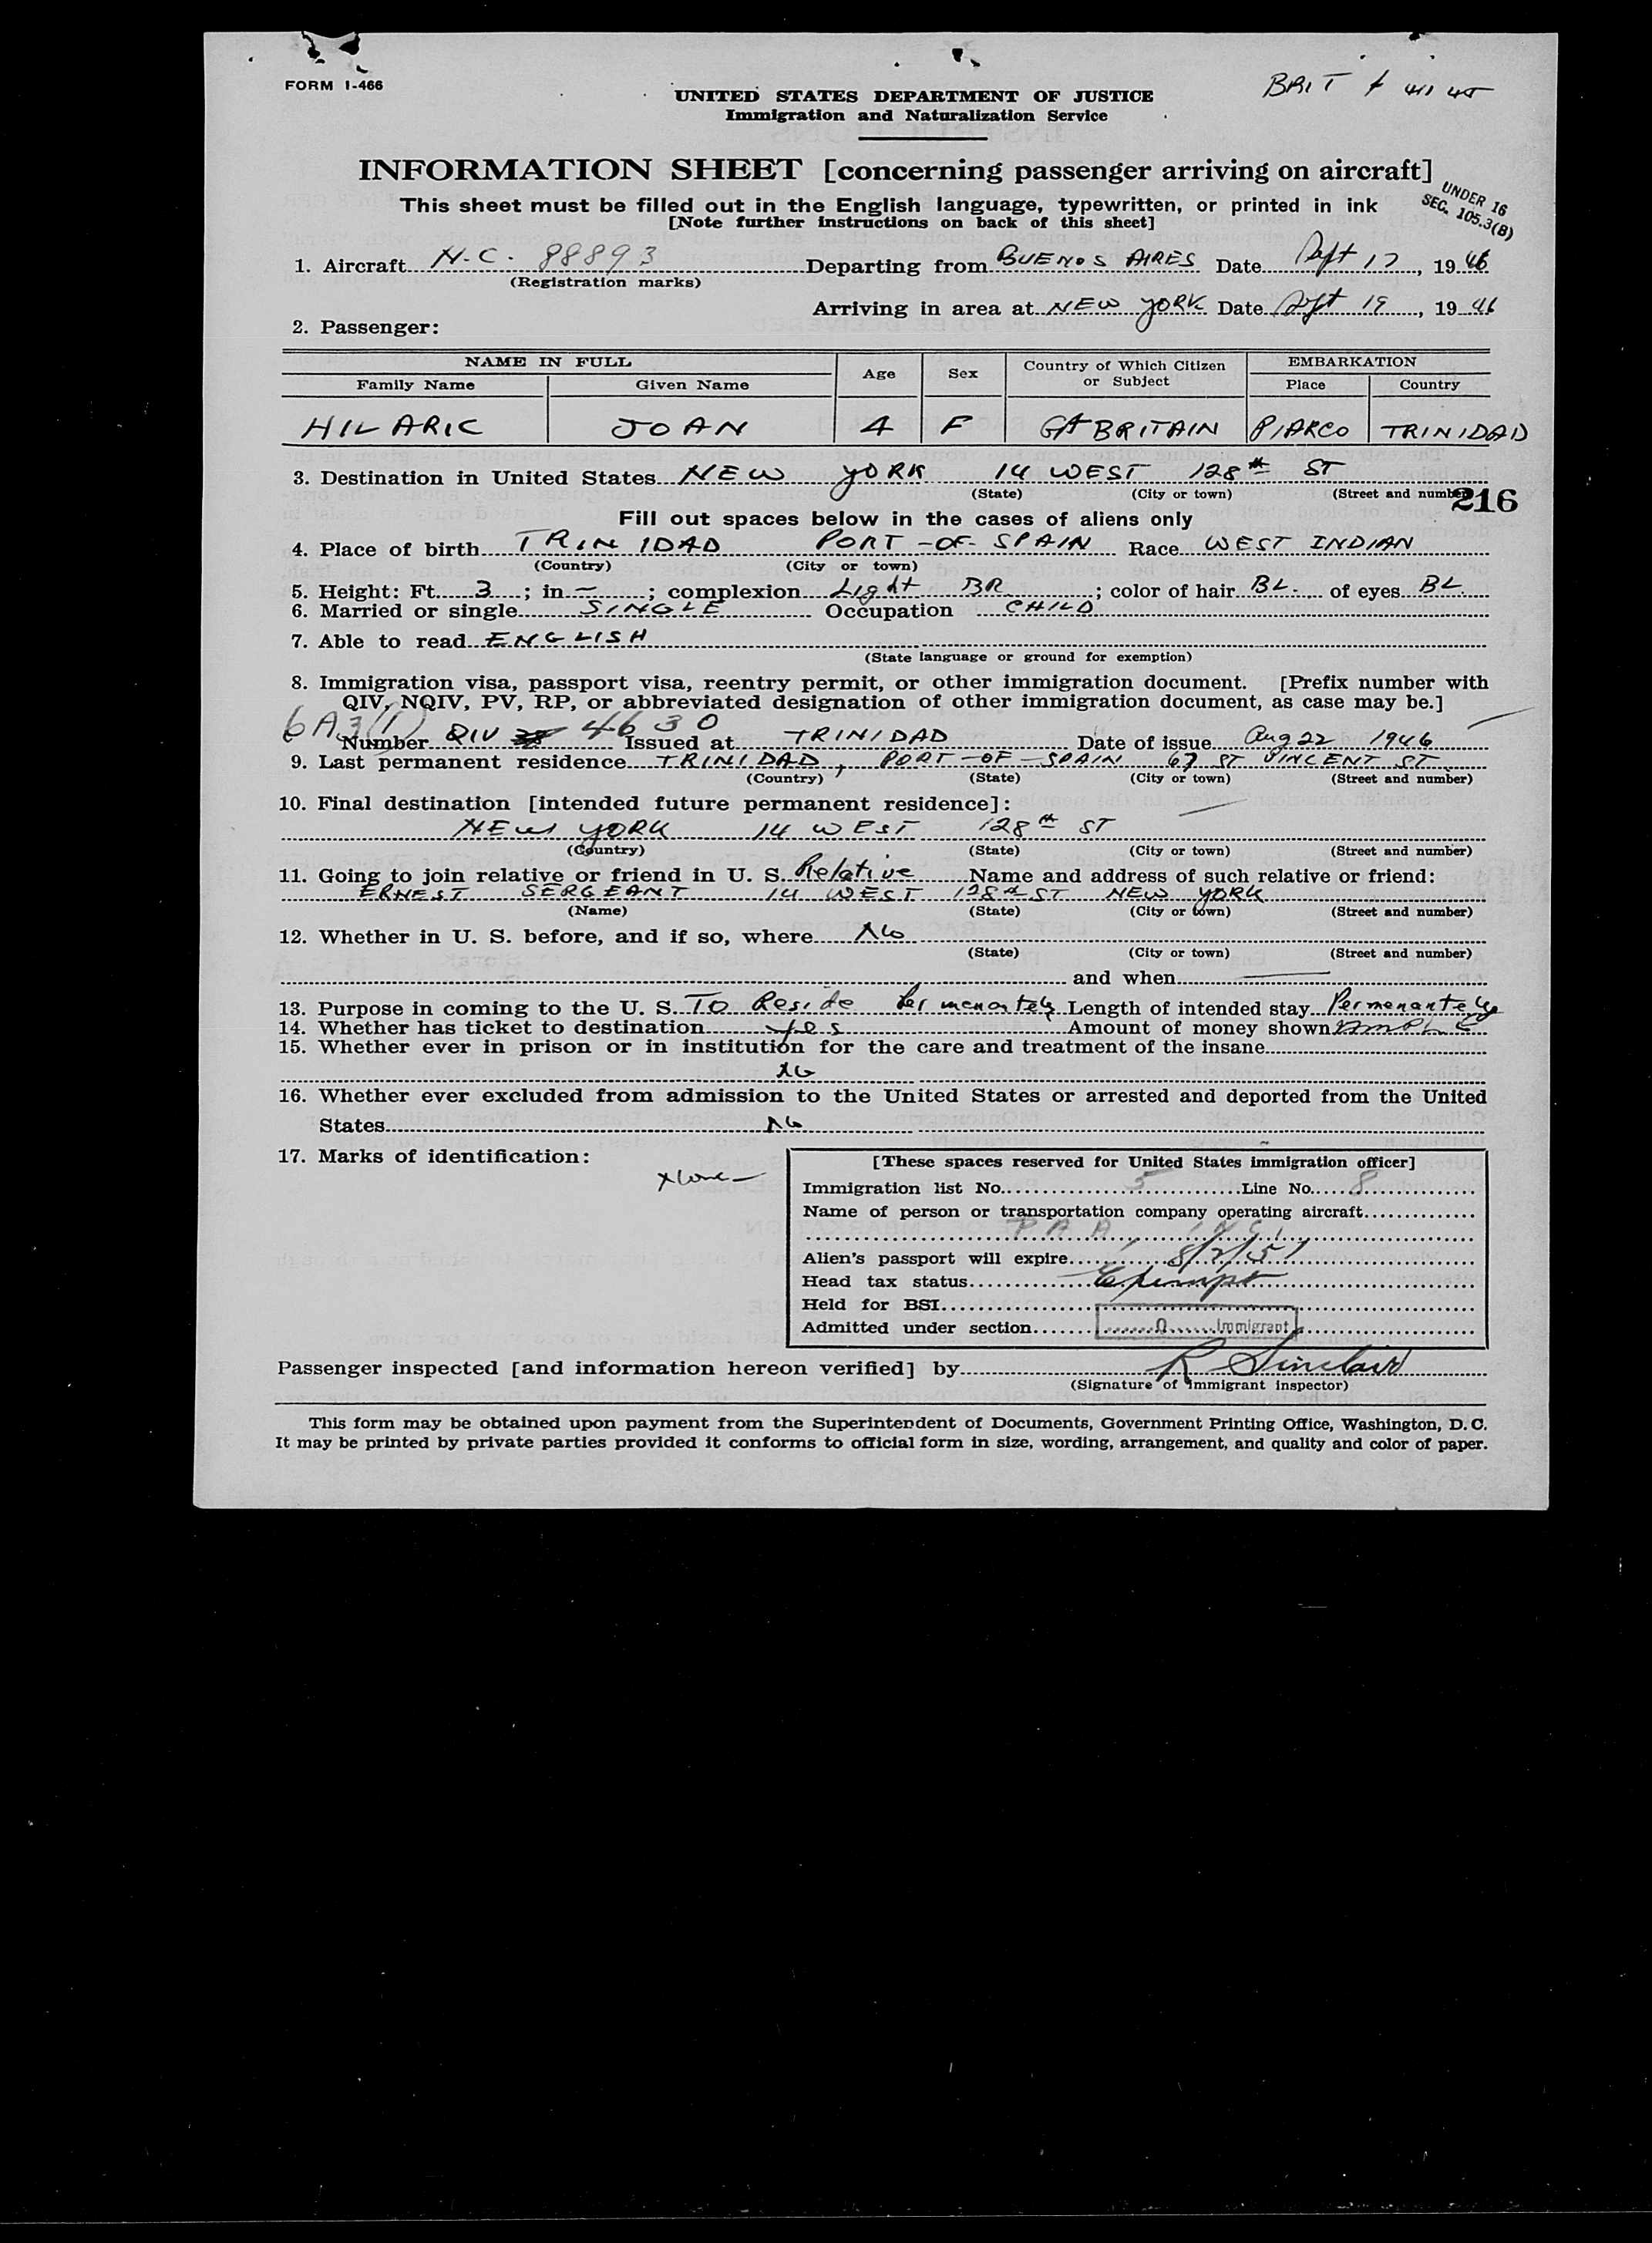 FORM I-466
BRIT
UNITED STATES DEPARTMENT OF JUSTICE
Immigration and Naturalization Service
INFORMATION SHEET [concerning passenger arriving on aircraft]
This sheet must be filled out in the English language, typewritten, or printed in ink
[Note further instructions on back of this sheet]
UNDER 16
SEC. 105.3(B)
1. Aircraft N.C. 88893 Departing from BUENOS AIRES Date Sept 17, 1946
(Registration marks)
Arriving in area at NEW YORK Date Sept 19, 1946
2. Passenger:
NAME IN FULL Age Sex Country of Which Citizen or Subject EMBARKATION
Family Name Given Name Place Country
HILARIC JOAN 4 F Gt BRITAIN PIARCO TRINIDAD
3. Destination in United States NEW YORK 14 WEST 128th ST
(State) (City or town) (Street and number)
216
Fill out spaces below in the cases of aliens only
4. Place of birth TRINIDAD PORT-OF-SPAIN Race WEST INDIAN
(Country) (City or town)
5. Height: Ft. 3; in —; complexion Light BR; color of hair BL. of eyes BL.
6. Married or single SINGLE Occupation CHILD
7. Able to read ENGLISH
(State language or ground for exemption)
8. Immigration visa, passport visa, reentry permit, or other immigration document. [Prefix number with
QIV, NQIV, PV, RP, or abbreviated designation of other immigration document, as case may be.]
6A3(1)
Number QIV 4630 Issued at TRINIDAD Date of issue Aug 22 1946
9. Last permanent residence TRINIDAD, PORT-OF-SPAIN 67 ST VINCENT ST
(Country) (State) (City or town) (Street and number)
10. Final destination [intended future permanent residence]:
NEW YORK 14 WEST 128th ST
(Country) (State) (City or town) (Street and number)
11. Going to join relative or friend in U. S. Relative Name and address of such relative or friend:
ERNEST SERGEANT 14 WEST 128th ST NEW YORK
(Name) (State) (City or town) (Street and number)
12. Whether in U. S. before, and if so, where No
(State) (City or town) (Street and number)
and when —
13. Purpose in coming to the U. S. To Reside Permenantely Length of intended stay Permenantely
14. Whether has ticket to destination yes Amount of money shown AMPLE
15. Whether ever in prison or in institution for the care and treatment of the insane
No
16. Whether ever excluded from admission to the United States or arrested and deported from the United
States No
17. Marks of identification:
None
[These spaces reserved for United States immigration officer]
Immigration list No. 5 Line No. 8
Name of person or transportation company operating aircraft
P A A, INC.
Alien's passport will expire 8/2/51
Head tax status Exempt
Held for BSI
Admitted under section Immigrant
Passenger inspected [and information hereon verified] by R Sinclair
(Signature of immigrant inspector)
This form may be obtained upon payment from the Superintendent of Documents, Government Printing Office, Washington, D. C.
It may be printed by private parties provided it conforms to official form in size, wording, arrangement, and quality and color of paper.